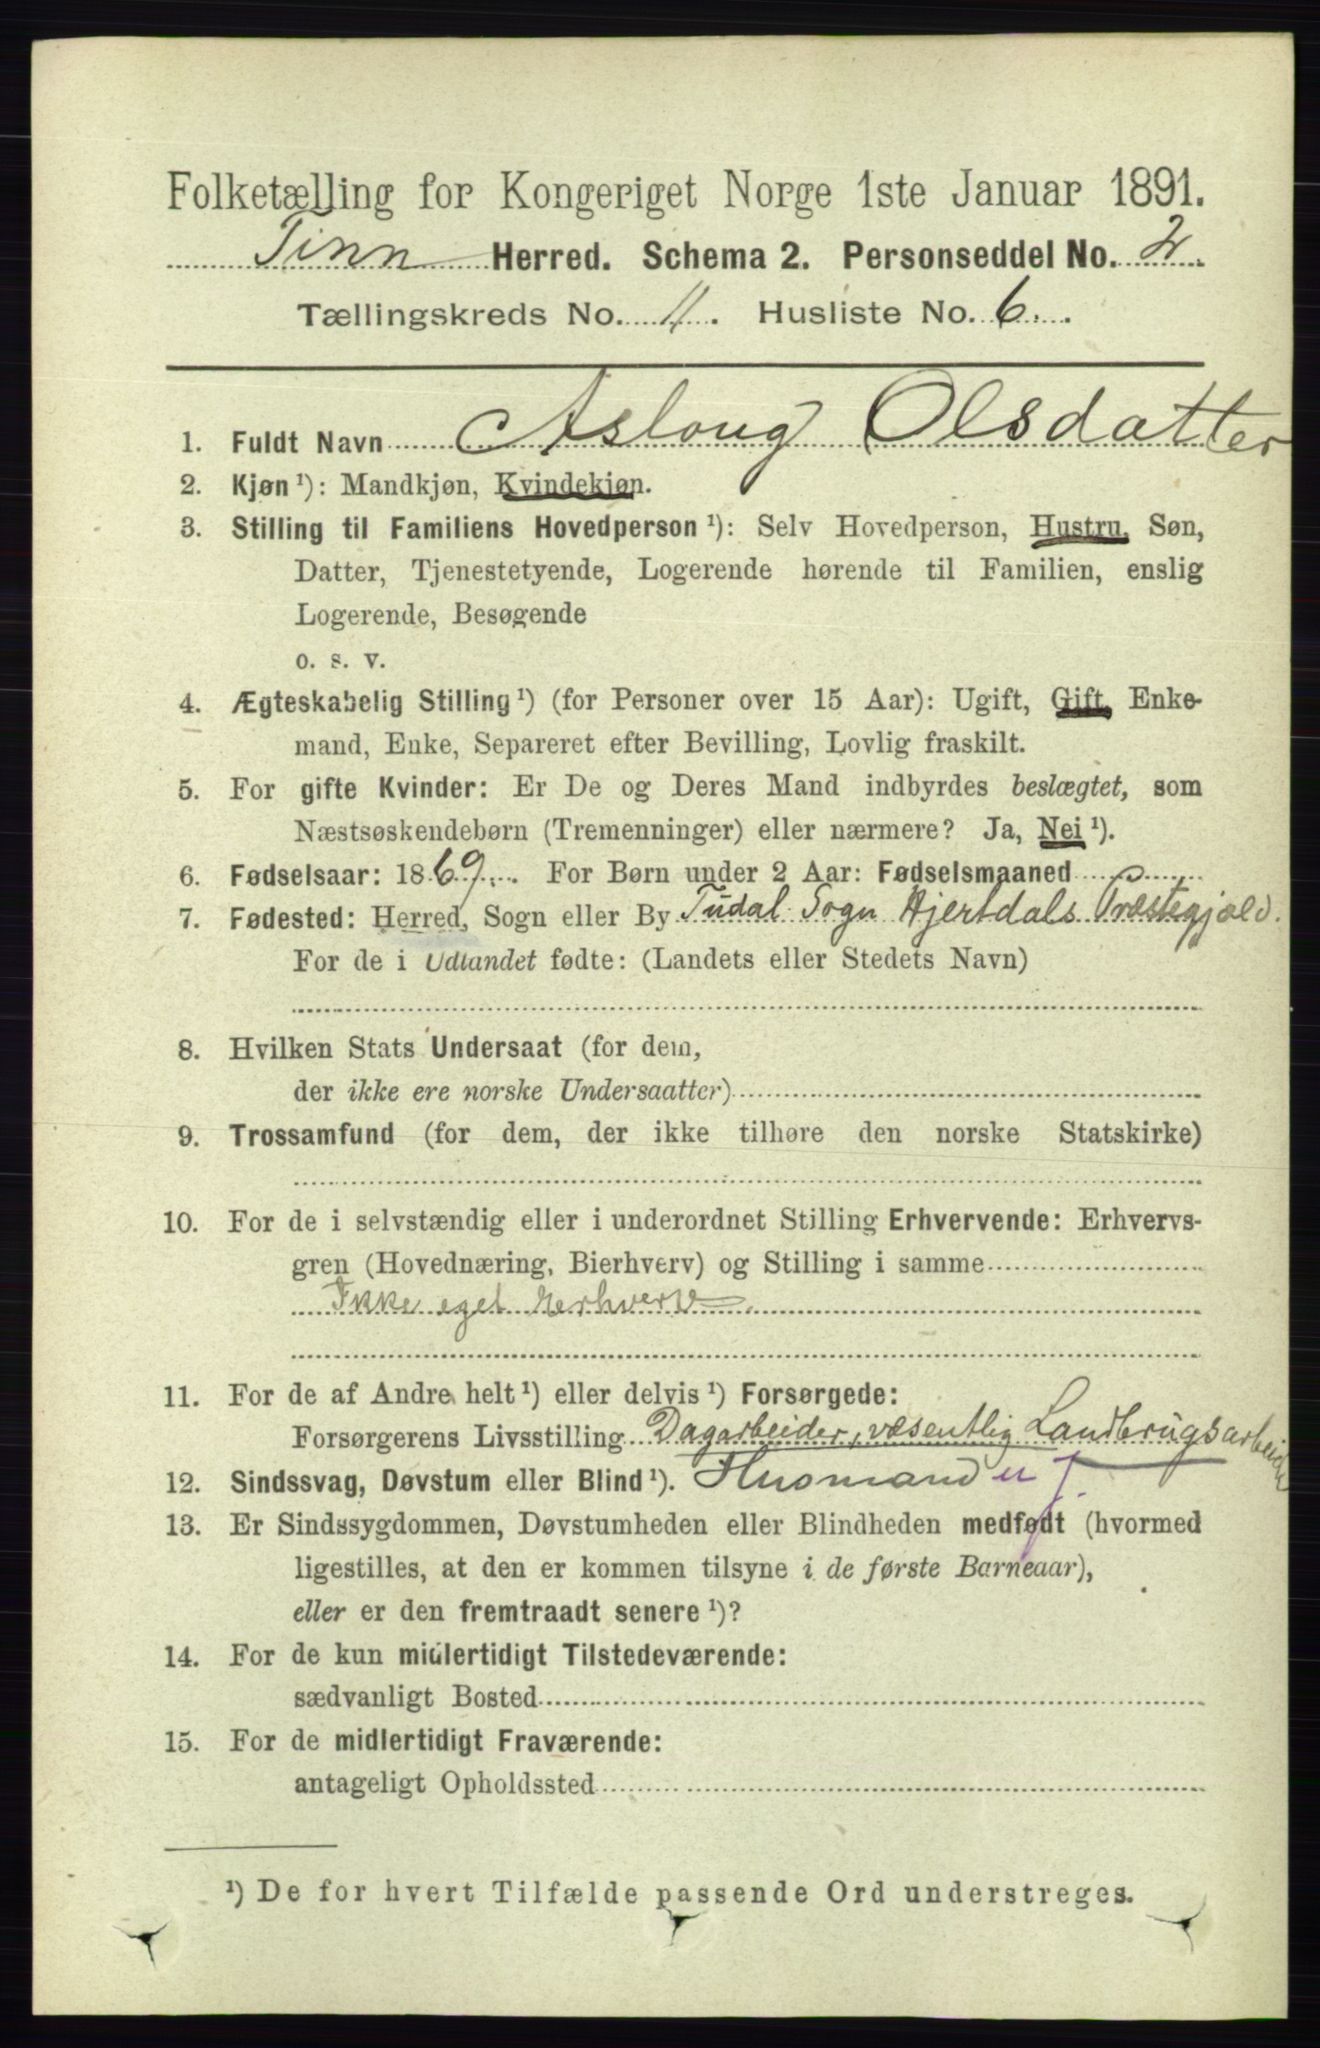 Folketælling for Kongeriget Norge 1ste Januar 1891.
Tinn Herred. Schema 2. Personseddel No. 2.
Tællingskreds No. 11. Husliste No. 6.
1. Fuldt Navn Asloug Olsdatter
2. Kjøn ¹): Mandkjøn, Kvindekjøn.
3. Stilling til Familiens Hovedperson ¹): Selv Hovedperson, Hustru, Søn,
Datter, Tjenestetyende, Logerende hørende til Familien, enslig
Logerende, Besøgende
o. s. v.
4. Ægteskabelig Stilling ¹) (for Personer over 15 Aar): Ugift, Gift, Enke-
mand, Enke, Separeret efter Bevilling, Lovlig fraskilt.
5. For gifte Kvinder: Er De og Deres Mand indbyrdes beslægtet, som
Næstsøskendebørn (Tremenninger) eller nærmere? Ja, Nei ¹).
6. Fødselsaar: 1869. For Børn under 2 Aar: Fødselsmaaned
7. Fødested: Herred, Sogn eller By Tudal Sogn Hjertdals Præstegjæld.
For de i Udlandet fødte: (Landets eller Stedets Navn)
8. Hvilken Stats Undersaat (for dem,
der ikke ere norske Undersaatter)
9. Trossamfund (for dem, der ikke tilhøre den norske Statskirke)
10. For de i selvstændig eller i underordnet Stilling Erhvervende: Erhvervs-
gren (Hovednæring, Bierhverv) og Stilling i samme
Ikke eget Eerhverv.
11. For de af Andre helt ¹) eller delvis ¹) Forsørgede:
Forsørgerens Livsstilling Dagarbeider, væsentlig Landbrugsarbeide
12. Sindssvag, Døvstum eller Blind ¹). Husmand u J.
13. Er Sindssygdommen, Døvstumheden eller Blindheden medfødt (hvormed
ligestilles, at den er kommen tilsyne i de første Barneaar),
eller er den fremtraadt senere ¹)?
14. For de kun midlertidigt Tilstedeværende:
sædvanligt Bosted
15. For de midlertidigt Fraværende:
antageligt Opholdssted
¹) De for hvert Tilfælde passende Ord understreges.